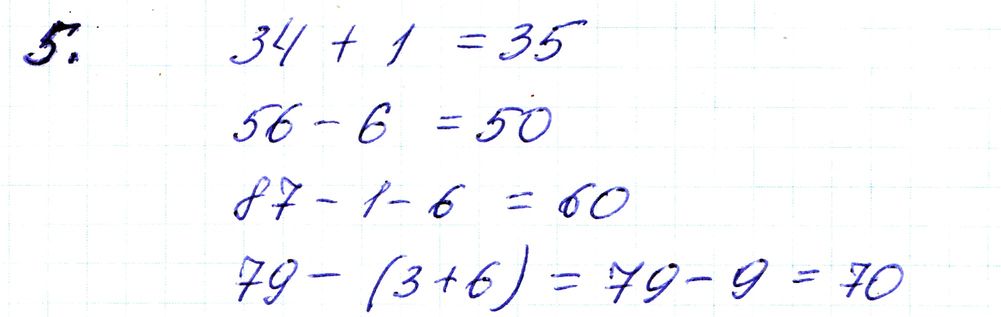 5. 34 + 1 = 35
56 - 6 = 50
87 - 1 - 6 = 60
79 - (3 + 6) = 79 - 9 = 70